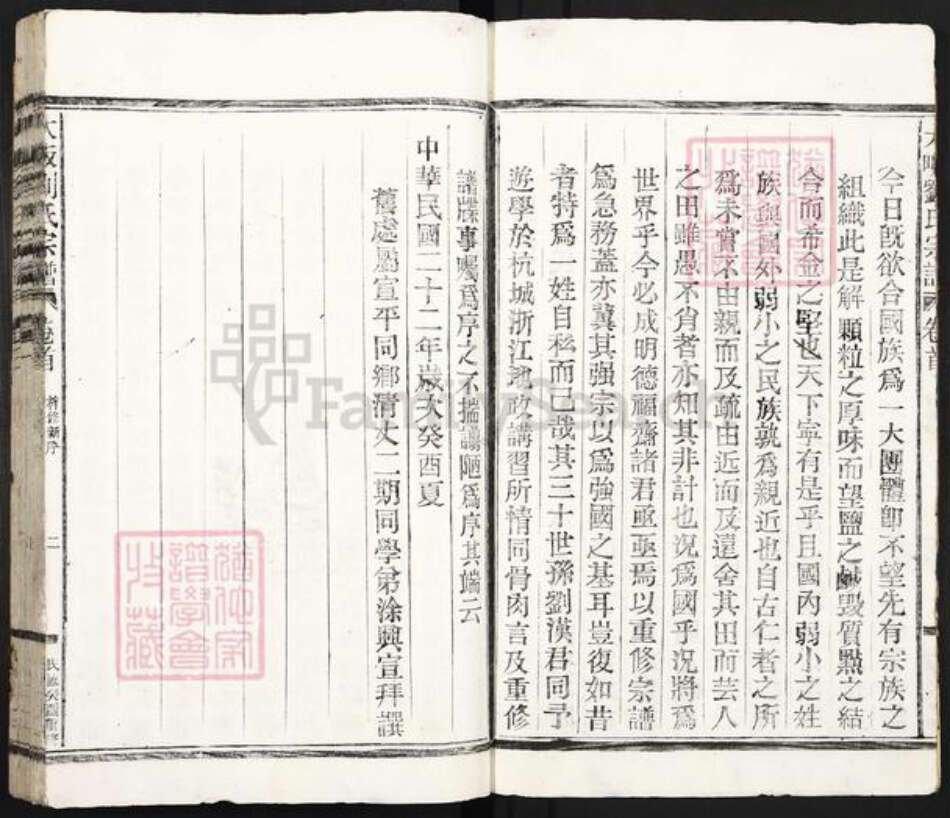 今日既欲合國族爲一大團體卽不望先有宗族之
組織此是解顆粒之厚味而望鹽之鹹毀質點之結
合而希金之堅也天下寧有是乎且國內弱小之姓
族與國外弱小之民族孰爲親近也自古仁者之所
爲未嘗不由親而及疏由近而及遠舍其田而芸人
之田雖愚不肖者亦知其非計也況爲國乎況將爲
世界乎今必成明德福齋諸君亟亟焉以重修宗譜
爲急務蓋亦冀其强宗以爲強國之基耳豈復如昔
者特爲一姓自私而已哉其三十世孫劉漢君同予
遊學於杭城浙江地政講習所情同骨肉言及重修
譜牒事囑爲序之不揣譾陋爲序其端云
中華民國二十二年歲次癸酉夏
舊處屬宣平同鄉清丈二期同學弟涂興宣拜譔
劉氏宗譜 卷首 新修新序 二
譜學會
收藏
FamilySearch